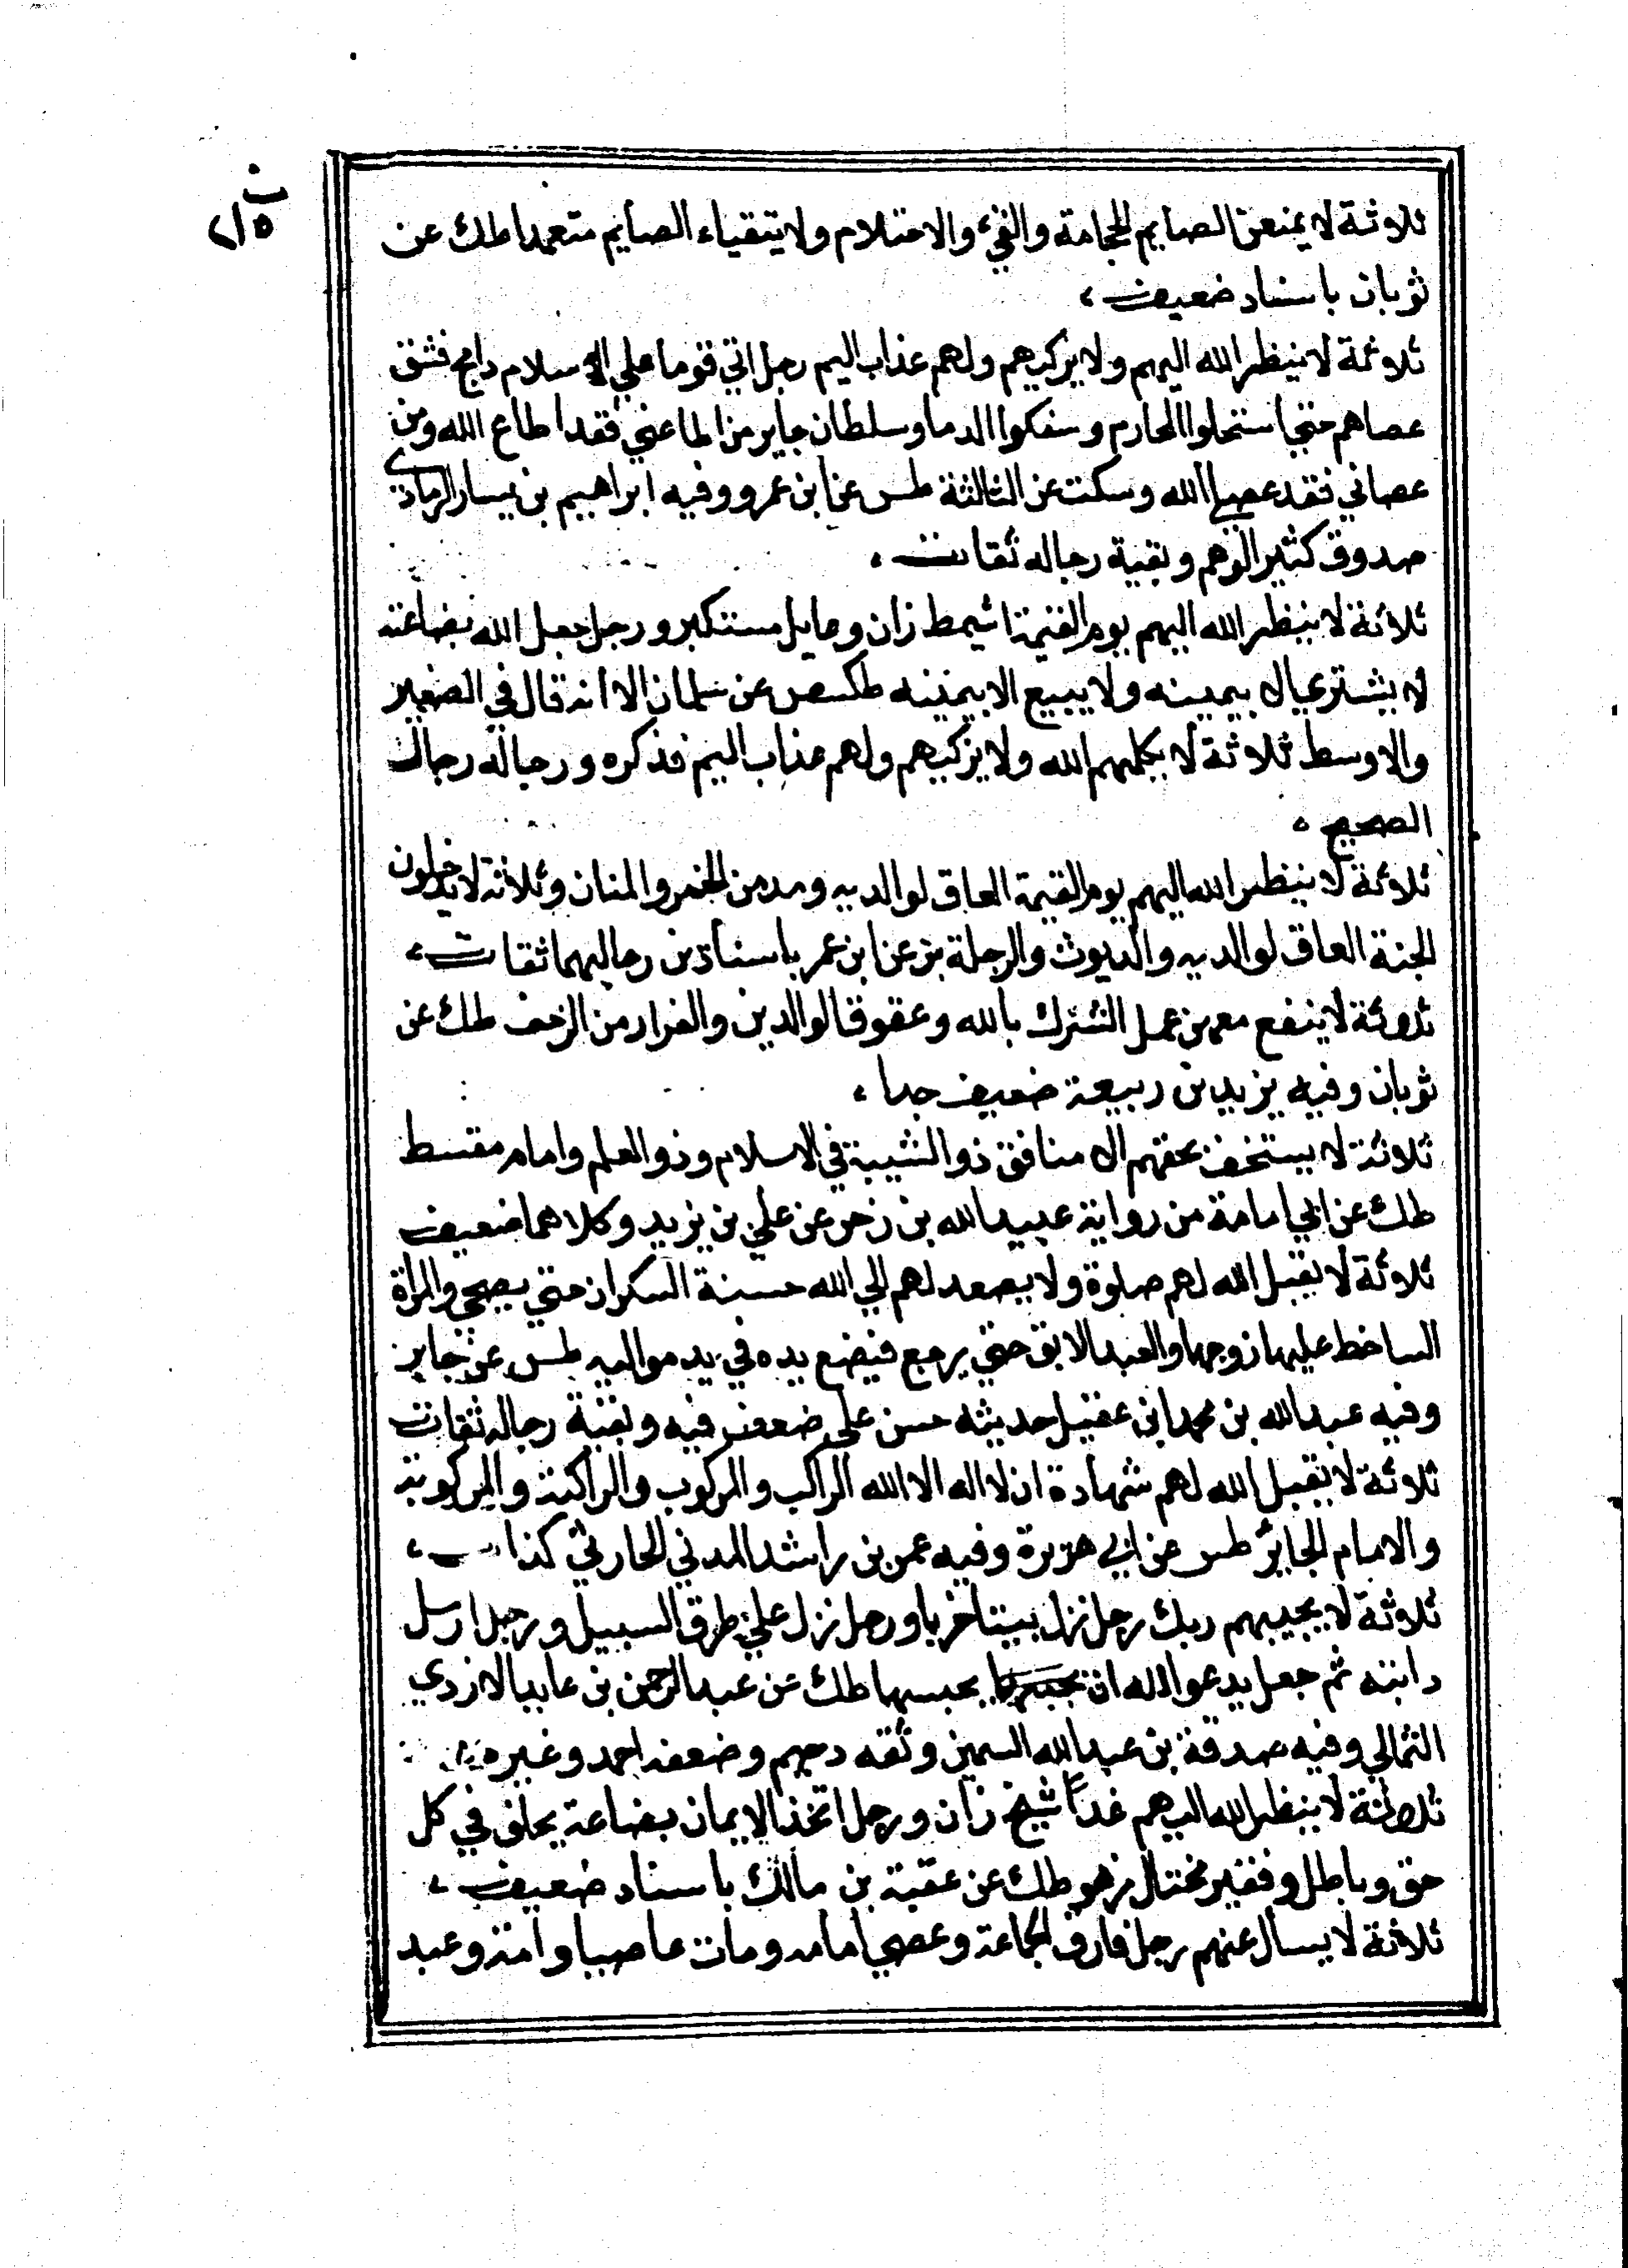 ت
٢١٥
ثلاثة لا يمنعن الصايم الحجامة والقيء والاحتلام ولا يتقياء الصايم متعمدا طك عن
ثوبان باسناد ضعيف،
ثلاثة لا ينظر الله اليهم ولا يزكيهم ولهم عذاب اليم رجل اتي قوما علي الاسلام دامج فشق
عصاهم حتي استحلوا المحارم وسفكوا الدما وسلطان جاير من اطاعني فقد اطاع الله ومن
عصاني فقد عصي الله وسكت عن الثالثة طس عن ابن عمرو وفيه ابراهيم بن بيسار الرمادي
صدوق كثير الوهم وبقية رجاله ثقات،
ثلاثة لا ينظر الله اليهم يوم القيمة اشيمط زان وعايل مستكبر ورجل جعل الله بضاعته
لا يشتري الا بيمينه ولا يبيع الا بيمينه طكسص عن سلمان الا انه قال في الصغير
والاوسط ثلاثة لا يكلمهم الله ولا يزكيهم ولهم عذاب اليم فذكره ورجاله رجال
الصحيح،
ثلاثة لا ينظر الله اليهم يوم القيمة العاق لوالديه ومدمن الخمر والمنان وثلاثة لا يدخلون
الجنة العاق لوالديه والديوث والرجلة بز عن ابن عمر باسنادين رجالهما ثقات،
ثلاثة لا ينفع معهن عمل الشرك بالله وعقوق الوالدين والفرار من الزحف طك عن
ثوبان وفيه يزيد بن ربيعة ضعيف جدا،
ثلاثة لا يستخف بحقهم الا منافق ذو الشيبة في الاسلام وذو العلم وامام مقسط
طك عن ابي امامة من رواية عبيد الله بن زحر عن علي بن يزيد وكلاهما ضعيف
ثلاثة لا يقبل الله لهم صلوة ولا يصعد لهم الي الله حسنة السكران حتي يصحي والمرأة
الساخط عليها زوجها والعبد الابق حتي يرجع فيضع يده في يد مواليه طس عن جابر
وفيه عبد الله بن محمد ابن عقيل حديثه حسن علي ضعف فيه وبقية رجاله ثقات
ثلاثة لا يقبل الله لهم شهادة ان لا اله الا الله الراكب والمركوب والراكبة والمركوبة
والامام الجاير طس عن ابي هريرة وفيه عمر بن راشد المدني الحارثي كذاب،
ثلاثة لا يجيبهم ربك رجل نزل بيتا خربا ورجل نزل علي طرق السبيل ورجل ارسل
دابته ثم جعل يدعوا الله ان يحبسها طك عن عبد الرحمن بن عايد الازدي
الثمالي وفيه صدقة بن عبد الله السمين وثقه دحيم وضعفه احمد وغيره
ثلاثة لا ينظر الله اليهم غدا شيخ زان ورجل اتخذ الايمان بضاعة يحلف في كل
حق وباطل وفقير مختال مزهو طك عن عقبة بن مالك باسناد ضعيف،
ثلاثة لا يسال عنهم رجل فارق الجماعة وعصي امامه ومات عاصيا وامة وعبد